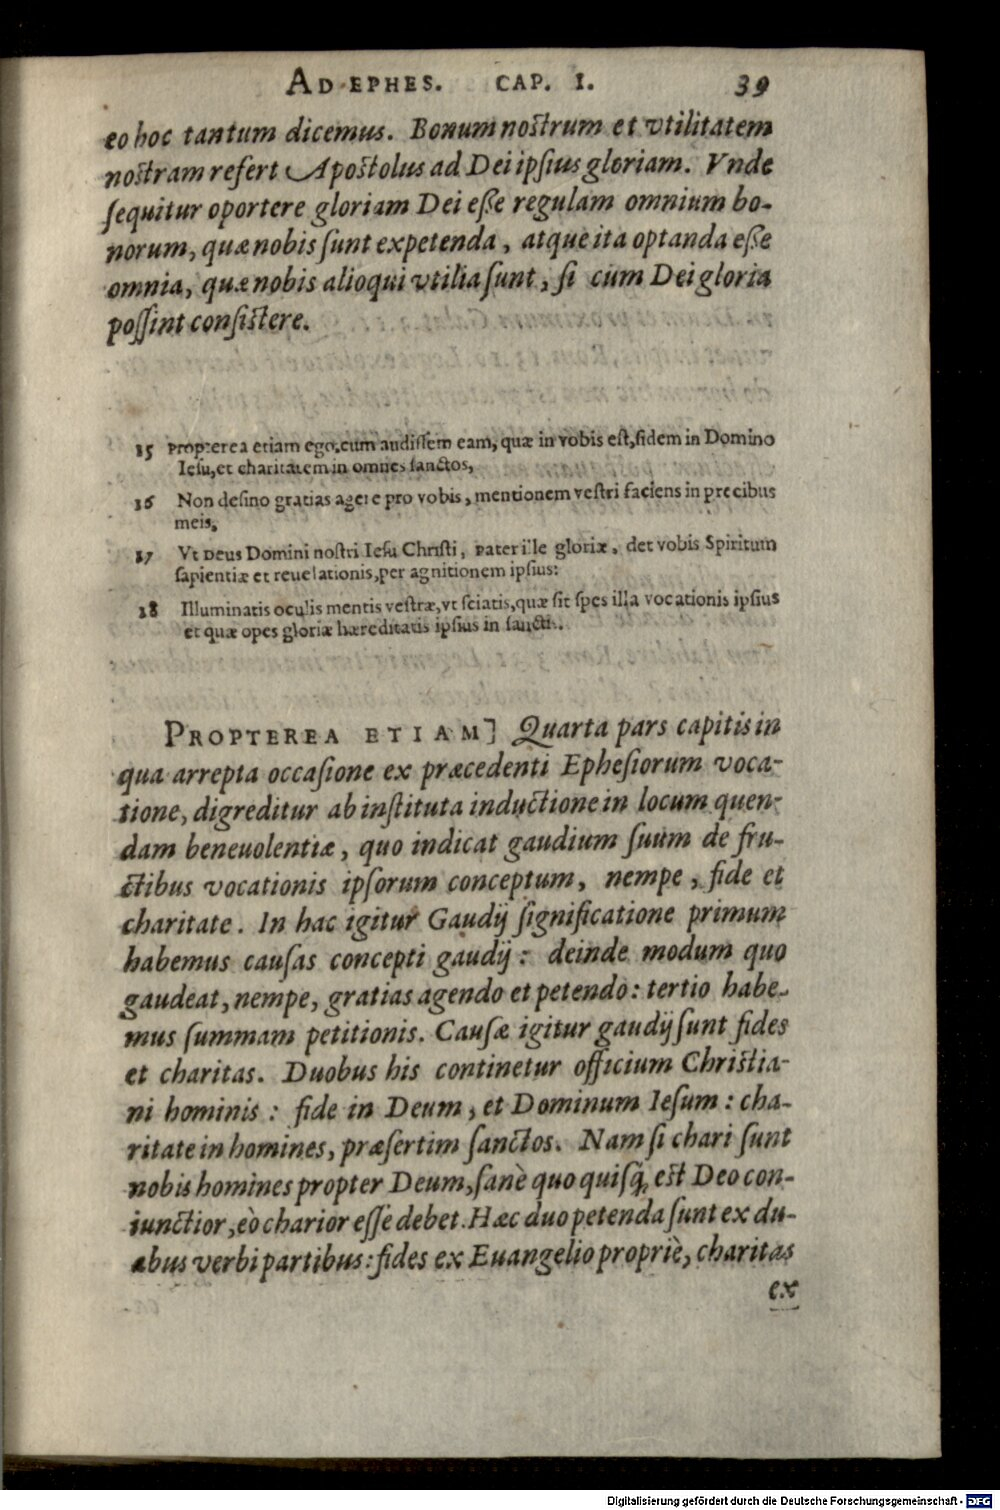 AD EPHES. CAP. I. 39
eo hoc tantum dicemus. Bonum nostrum et vtilitatem
nostram refert Apostolus ad Dei ipſius gloriam. Vnde
ſequitur oportere gloriam Dei eße regulam omnium bo-
norum, quæ nobis ſunt expetenda, atque ita optanda eße
omnia, quæ nobis alioqui vtilia ſunt, ſi cum Dei gloria
poſſint conſistere.
15 Propterea etiam ego, cum audiſſem eam, quæ in vobis eſt, fidem in Domino
Ieſu, et charitatem in omnes ſanctos,
16 Non deſino gratias agere pro vobis, mentionem veſtri faciens in precibus
meis,
17 Vt Deus Domini noſtri Ieſu Chriſti, Pater ille gloriæ, det vobis Spiritum
ſapientiæ et reuelationis, per agnitionem ipſius:
18 Illuminatis oculis mentis veſtræ, vt ſciatis, quæ ſit ſpes illa vocationis ipſius
et quæ opes gloriæ hæreditatis ipſius in ſanctis.
PROPTEREA ETIAM] Quarta pars capitis in
qua arrepta occaſione ex præcedenti Epheſiorum voca-
tione, digreditur ab inſtituta inductione in locum quen-
dam beneuolentiæ, quo indicat gaudium ſuum de fru-
ctibus vocationis ipſorum conceptum, nempe, fide et
charitate. In hac igitur Gaudij ſignificatione primum
habemus cauſas concepti gaudij: deinde modum quo
gaudeat, nempe, gratias agendo et petendo: tertio habe-
mus ſummam petitionis. Cauſæ igitur gaudij ſunt fides
et charitas. Duobus his continetur officium Chriſtia-
ni hominis: fide in Deum, et Dominum Ieſum: cha-
ritate in homines, præſertim ſanctos. Nam ſi chari ſunt
nobis homines propter Deum, ſanè quo quiſq́; est Deo con-
iunctior, eò charior eſſe debet. Hæc duo petenda ſunt ex du-
abus verbi partibus: fides ex Euangelio propriè, charitas
ex
Digitalisierung gefördert durch die Deutsche Forschungsgemeinschaft - DFG